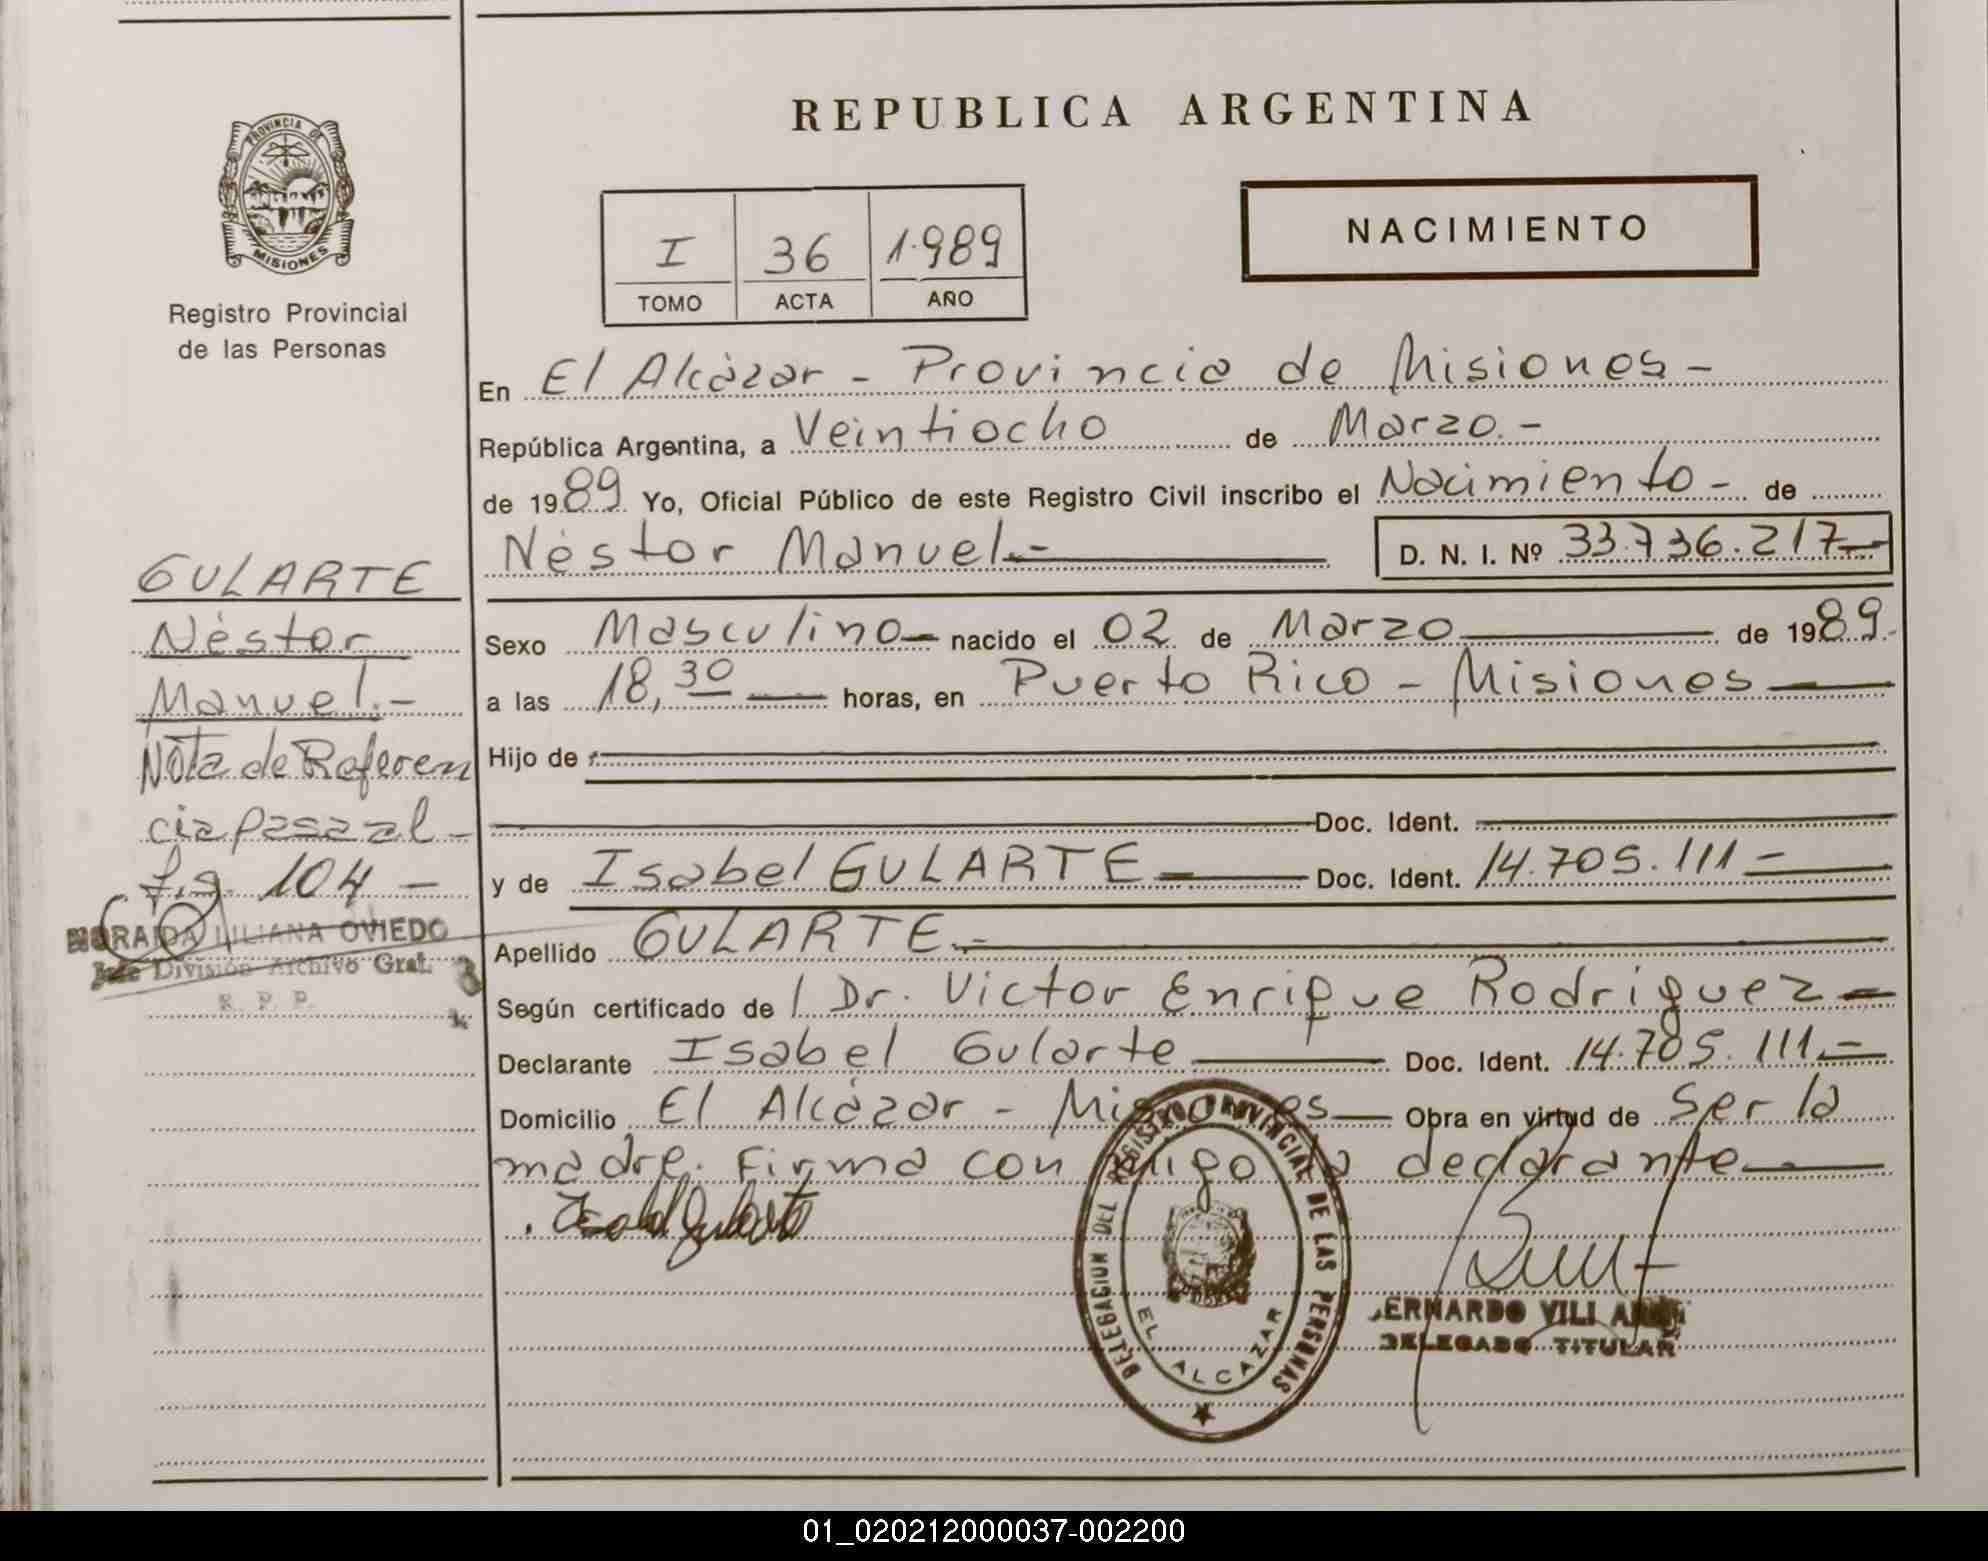 REPUBLICA ARGENTINA
PROVINCIA DE
MISIONES
Registro Provincial
de las Personas
I 36 1.989
TOMO ACTA AÑO
NACIMIENTO
En El Alcázar - Provincia de Misiones -
República Argentina, a Veintiocho de Marzo. -
de 1989 Yo, Oficial Público de este Registro Civil inscribo el Nacimiento - de
Néstor Manuel. - D. N. I. Nº 33.736.217
GULARTE
Néstor
Manuel. -
Nota de Referen
cia pasa al -
fig. 104 -
LILIANA OVIEDO
Jefe División Archivo Gral.
R. P. P.
Sexo Masculino - nacido el 02 de Marzo de 1989.
a las 18,30 horas, en Puerto Rico - Misiones
Hijo de
Doc. Ident.
y de Isabel GULARTE Doc. Ident. 14.705.111 -
Apellido GULARTE. -
Según certificado de l Dr. Victor Enrique Rodriguez -
Declarante Isabel Gularte Doc. Ident. 14.705.111. -
Domicilio El Alcázar - Misiones Obra en virtud de Ser la
madre. Firma con migo la declarante
Isabel Gularte
DELEGACION DEL REGISTRO PROVINCIAL DE LAS PERSONAS
EL ALCAZAR
DELEGADO TITULAR
01_020212000037-002200